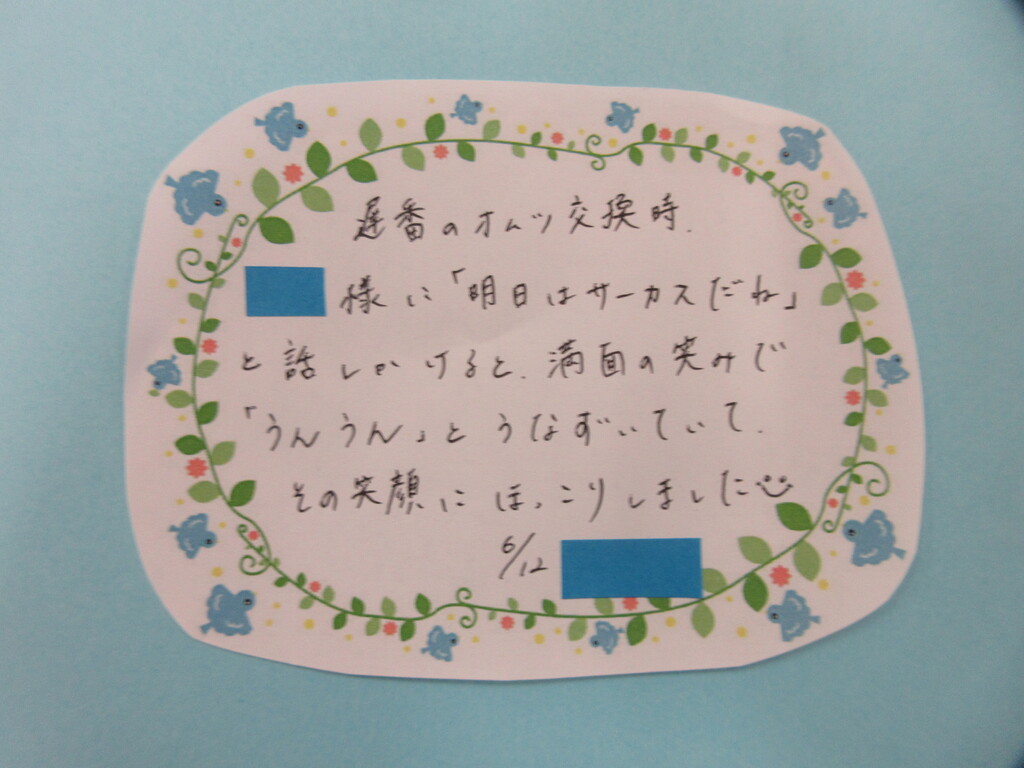 遅番のオムツ交換時.
様に「明日はサーカスだね」
と話しかけると、満面の笑みで
「うんうん」とうなずいていて、
その笑顔にほっこりしました
6/12